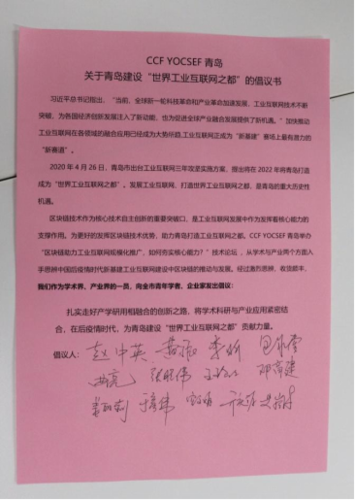 CCF YOCSEF 青岛
关于青岛建设“世界工业互联网之都”的倡议书
习近平总书记指出，“当前，全球新一轮科技革命和产业革命加速发展，工业互联网技术不断
突破，为各国经济创新发展注入了新动能，也为促进全球产业融合发展提供了新机遇。”加快推动
工业互联网在各领域的融合应用已经成为大势所趋，工业互联网正成为“新基建”赛场上最有潜力的
“新赛道”。
2020 年 4 月 26 日，青岛市出台工业互联网三年攻坚实施方案，提出将在 2022 年将青岛打造
成为“世界工业互联网之都”。发展工业互联网，打造世界工业互联网之都，是青岛的重大历史性
机遇。
区块链技术作为核心技术自主创新的重要突破口，是工业互联网发展中作为发挥着核心能力的
支撑作用。为更好的发挥区块链技术优势，助力青岛打造工业互联网之都，CCF YOCSEF 青岛举办
“区块链助力工业互联网规模化推广，如何夯实核心能力？”技术论坛，从学术与产业两个方面入
手思辨中国后疫情时代新基建工业互联网建设中区块链的推动与发展。经过激烈思辨、在该题本，
我们作为学术界、产业界的一员，向全市青年学者、企业家发出倡议：
扎实走好产学研用相融合的创新之路，将学术科研与产业应用紧密结
合，在后疫情时代，为青岛建设“世界工业互联网之都”贡献力量。
倡议人： 赵中英
张昭伟